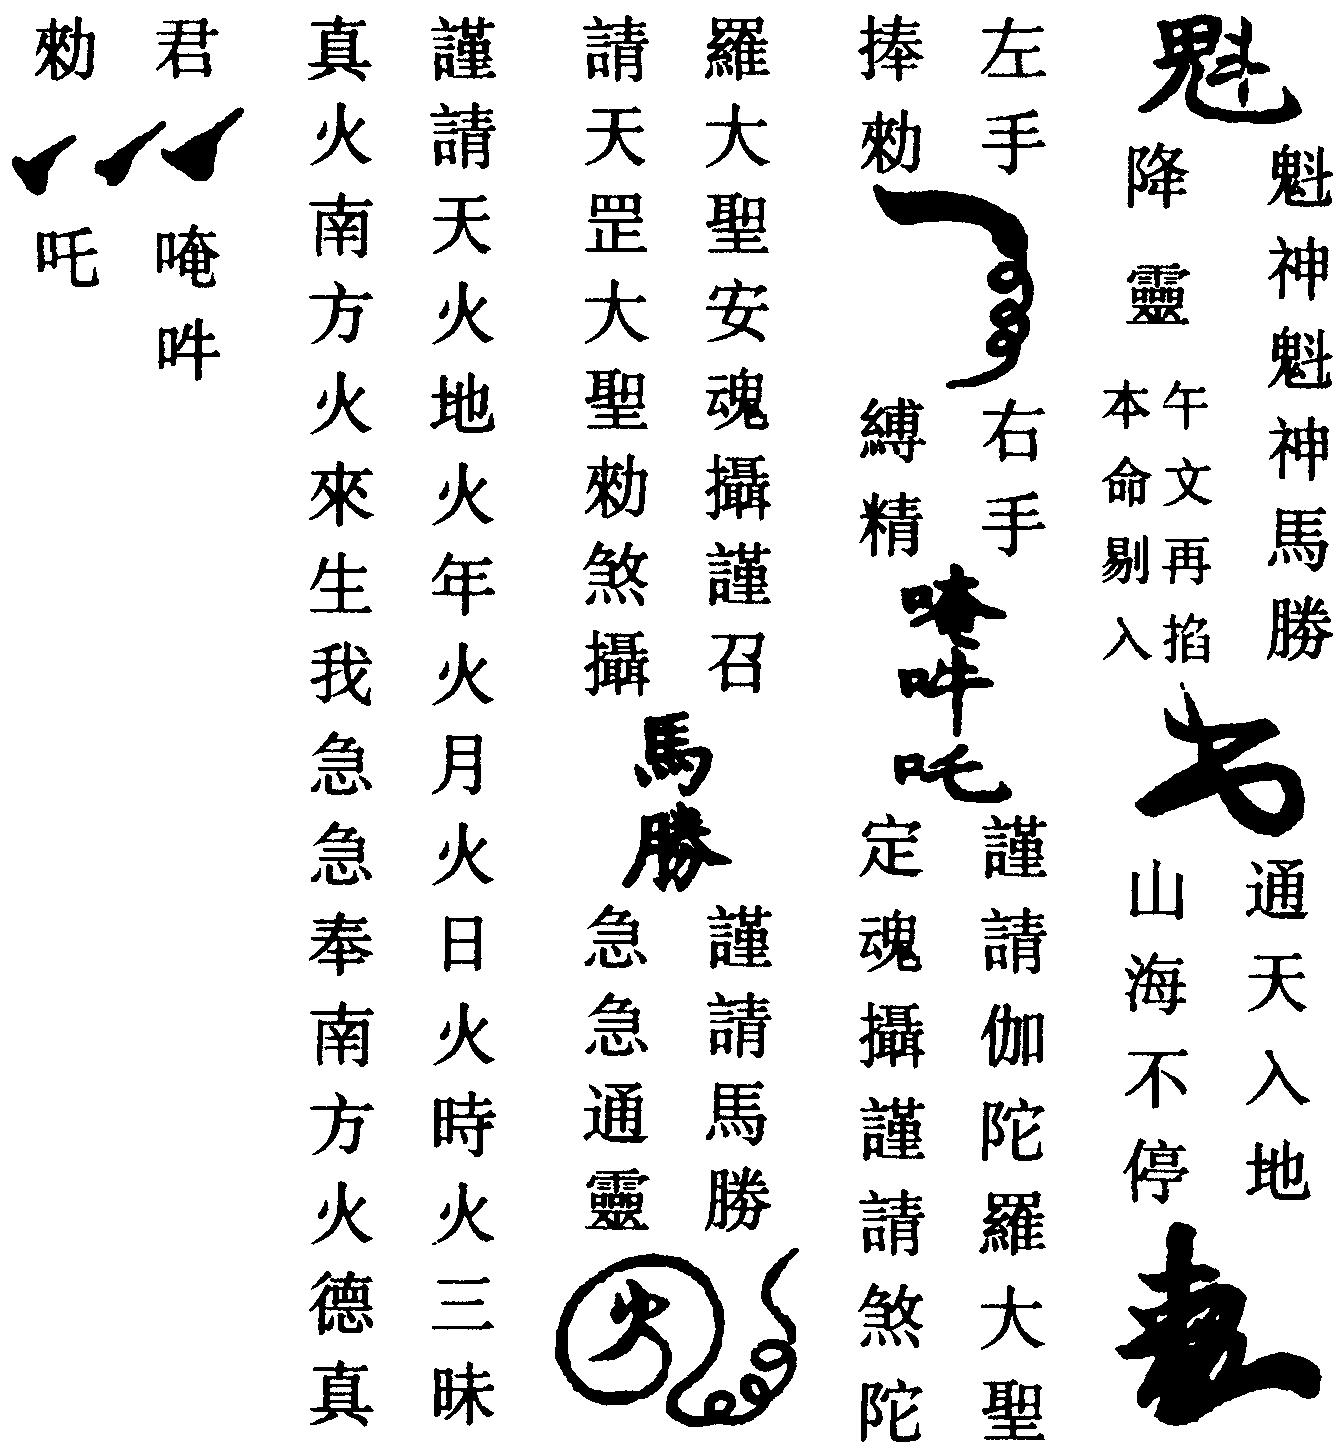 魁
魁神魁神馬勝
降靈
午文再掐
本命剔入
通天入地
山海不停
左手
捧勑
右手
縛精
唵吽吒
謹請伽陀羅大聖
定魂攝謹請煞陀
羅大聖安魂攝謹召
請天罡大聖勑煞攝
馬勝
謹請馬勝
急急通靈
火
謹請天火地火年火月火日火時火三昧
真火南方火來生我急急奉南方火德真
君
勑
唵吽
吒